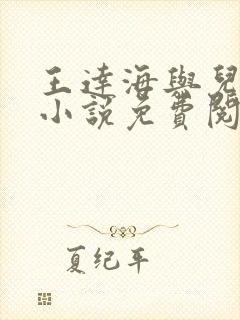 王達海與兒
小說免費閱
夏纪年